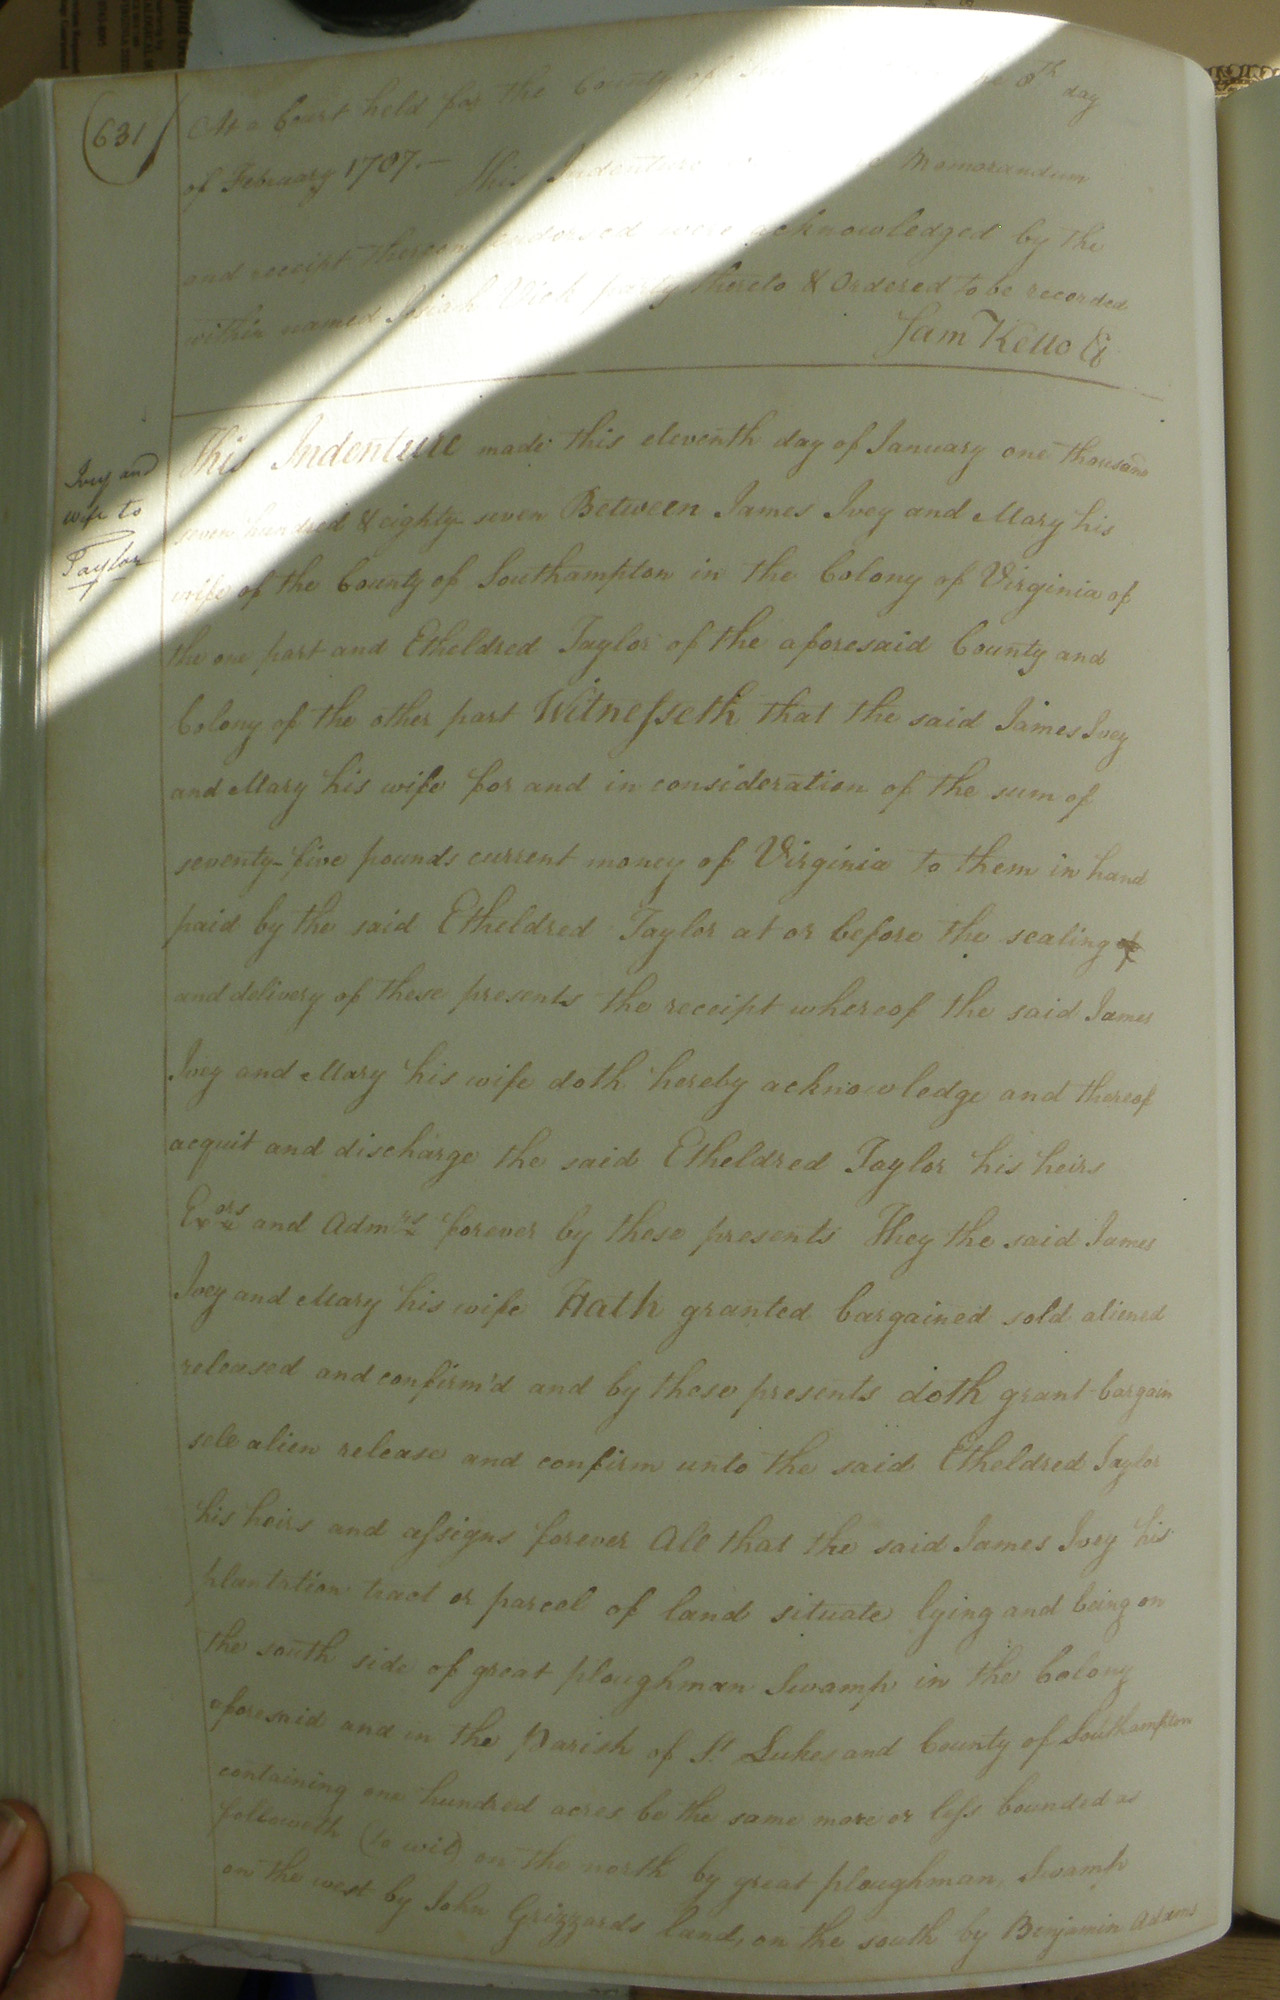 (631)
At a Court held for the County of the 8th day
of February 1787.— This Indenture Memorandum
and receipt thereon endorsed were acknowledged by the
within named Josiah Vick party thereto & Ordered to be recorded
Sam Kello
Ivey and
wife to
Taylor
This Indenture made this eleventh day of January one thousand
seven hundred & eighty seven Between James Ivey and Mary his
wife of the County of Southampton in the Colony of Virginia of
the one part and Etheldred Taylor of the aforesaid County and
Colony of the other part Witnesseth that the said James Ivey
and Mary his wife for and in consideration of the sum of
seventy-five pounds current money of Virginia to them in hand
paid by the said Etheldred Taylor at or before the sealing
and delivery of these presents the receipt whereof the said James
Ivey and Mary his wife doth hereby acknowledge and thereof
acquit and discharge the said Etheldred Taylor his heirs
Exors and Admrs forever by these presents They the said James
Ivey and Mary his wife Hath granted bargained sold aliened
released and confirm'd and by these presents doth grant bargain
sele alien release and confirm unto the said Etheldred Taylor
his heirs and assigns forever All that the said James Ivey his
plantation tract or parcel of land situate lying and being on
the south side of great ploughman Swamp in the Colony
aforesaid and in the Parish of St Lukes and County of Southampton
containing one hundred acres be the same more or less bounded as
followeth (to wit) on the north by great ploughman Swamp
on the west by John Grizzards land, on the south by Benjamin Adams